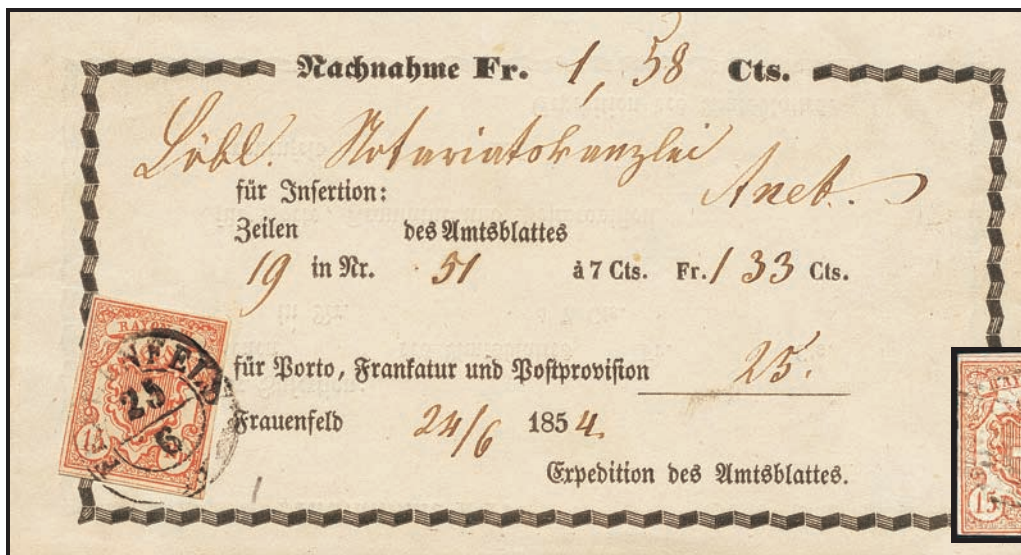 Nachnahme Fr. 1,58 Cts.
Löbl. Notariatskanzlei
für Insertion:
Zeilen des Amtsblattes
19 in Nr. 51 à 7 Cts. Fr. 1 33 Cts.
RAYON
NFELD
25
6
für Porto, Frankatur und Postprovision 25.
Frauenfeld 24/6 1854
Expedition des Amtsblattes.
15